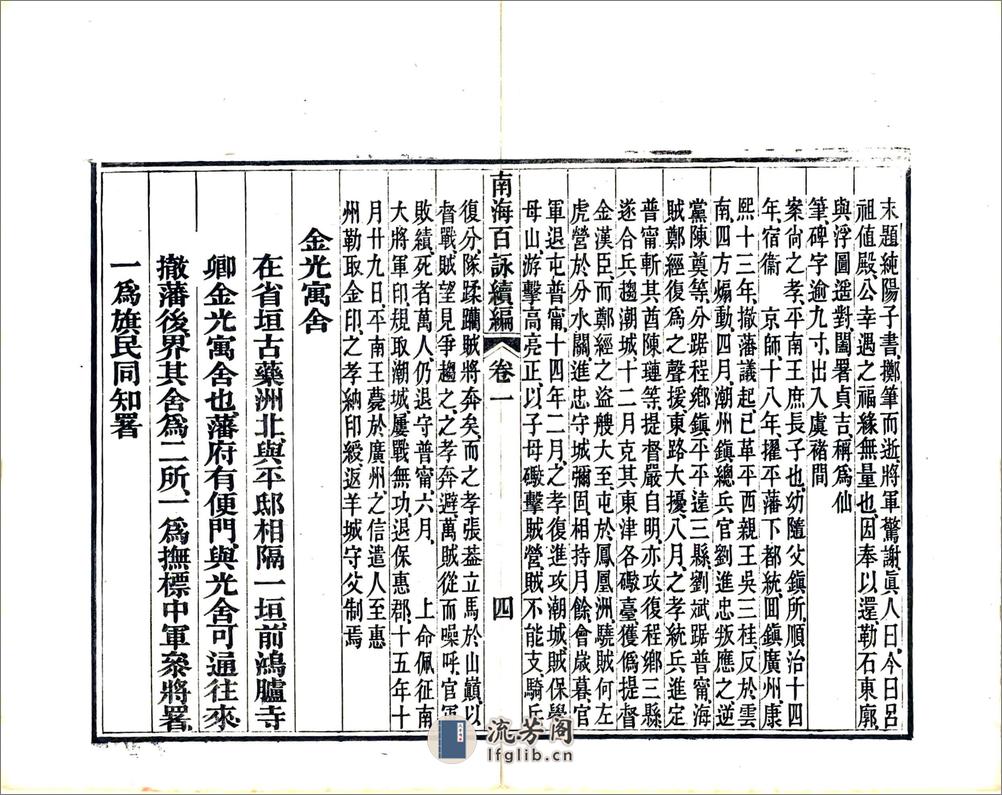 末題純陽子書擲筆而逝將軍驚謝眞人曰今日呂
祖値殿公幸遇之福緣無量也因奉以還勒石東廓
與浮圖遥對闔署貞吉稱爲仙
筆碑字逾九寸出入虞褚間
案尙之孝平南王庶長子也幼隨父鎭所順治十四
年宿衞　京師十八年擢平藩下都統囬鎭廣州康
熙十三年撤藩議起已革平西親王吳三桂反於雲
南四方煽動四月潮州鎭總兵官劉進忠叛應之逆
黨陳奠等分踞程鄉鎭平平遠三縣劉斌踞普甯海
賊鄭經復爲之聲援東路大擾八月之孝統兵進定
普甯斬其酋陳璉等提督嚴自明亦攻復程鄉三縣
遂合兵趨潮城十二月克其東津各礮臺獲僞提督
金漢臣而鄭經之盜艘大至屯於鳳凰洲驍賊何左
虎營於分水關進忠守城彌固相持月餘會歲暮官
軍退屯普甯十四年二月之孝復進攻潮城賊保學
母山游擊高亮正以子母礮擊賊營賊不能支騎兵
南海百詠續編　卷一　四
復分隊蹂躪賊將奔矣而之孝張葢立馬於山巔以
督戰賊望見爭趨之之孝奔避萬賊從而噪呼官軍
敗績死者萬人仍退守普甯六月　上命佩征南
大將軍印規取潮城屢戰無功退保惠郡十五年十
月廿九日平南王薨於廣州之信遣人至惠
州勒取金印之孝納印綬返羊城守父制焉
金光寓舍
在省垣古藥洲北與平邸相隔一垣前鴻臚寺
卿金光寓舍也藩府有便門與光舍可通往來
撤藩後界其舍爲二所一爲撫標中軍叅將署
一爲旗民同知署
流芳阁
lfglib.cn